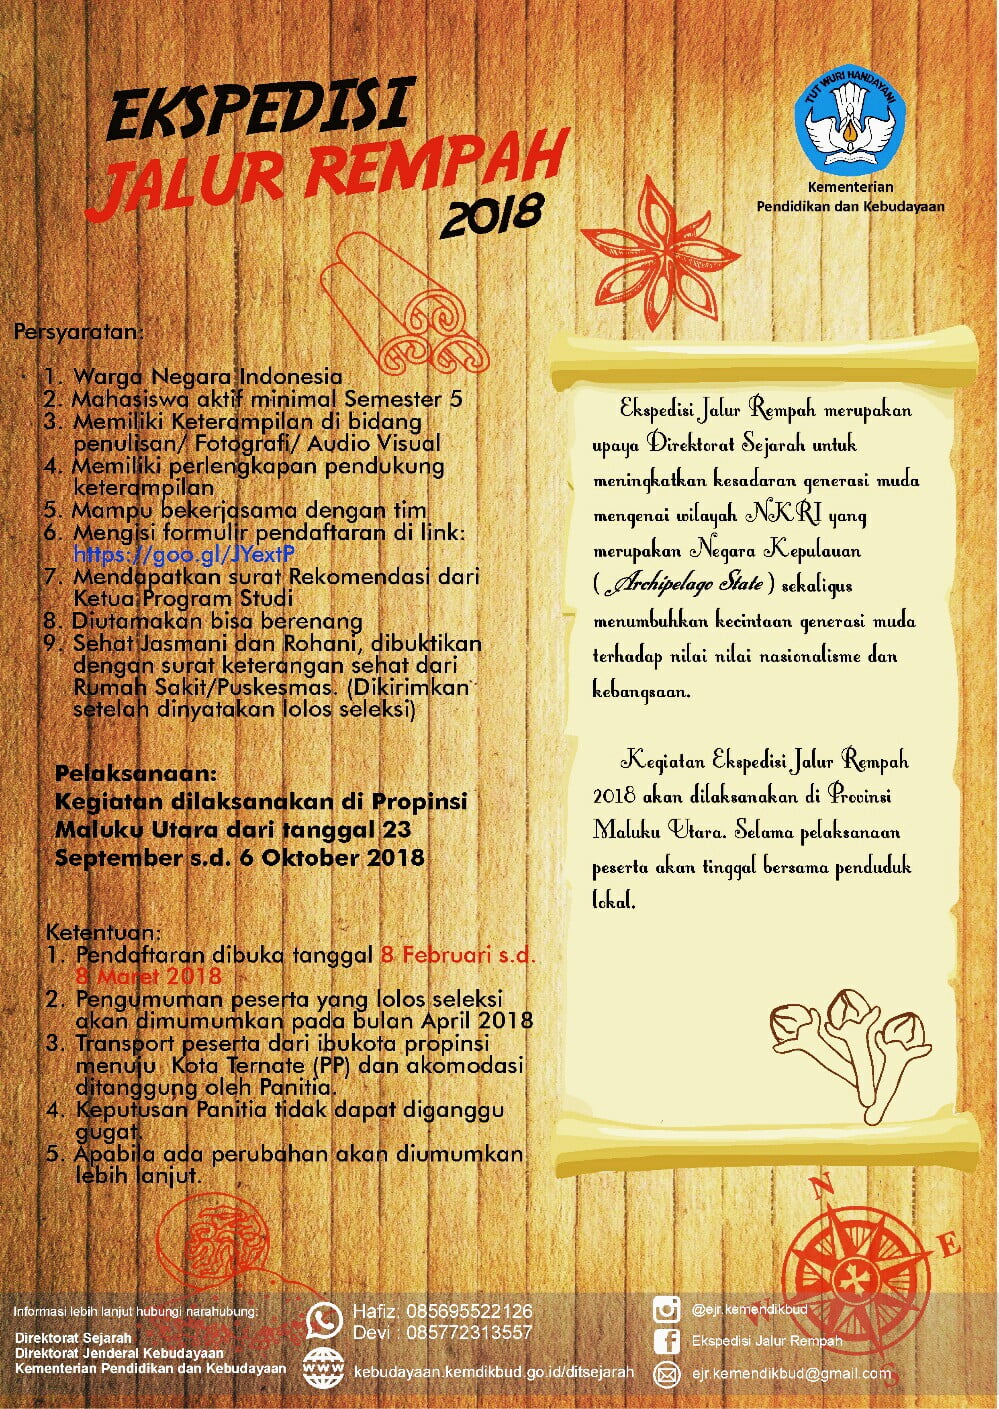 EKSPEDISI
JALUR REMPAH
2018
TUT WURI HANDAYANI
Kementerian
Pendidikan dan Kebudayaan
Persyaratan:
1. Warga Negara Indonesia
2. Mahasiswa aktif minimal Semester 5
3. Memiliki Keterampilan di bidang
penulisan/ Fotografi/ Audio Visual
4. Memiliki perlengkapan pendukung
keterampilan
5. Mampu bekerjasama dengan tim
6. Mengisi formulir pendaftaran di link:
https://goo.gl/JYextP
7. Mendapatkan surat Rekomendasi dari
Ketua Program Studi
8. Diutamakan bisa berenang
9. Sehat Jasmani dan Rohani, dibuktikan
dengan surat keterangan sehat dari
Rumah Sakit/Puskesmas. (Dikirimkan
setelah dinyatakan lolos seleksi)
Pelaksanaan:
Kegiatan dilaksanakan di Propinsi
Maluku Utara dari tanggal 23
September s.d. 6 Oktober 2018
Ketentuan:
1. Pendaftaran dibuka tanggal 8 Februari s.d.
8 Maret 2018
2. Pengumuman peserta yang lolos seleksi
akan dimumumkan pada bulan April 2018
3. Transport peserta dari ibukota propinsi
menuju Kota Ternate (PP) dan akomodasi
ditanggung oleh Panitia.
4. Keputusan Panitia tidak dapat diganggu
gugat.
5. Apabila ada perubahan akan diumumkan
lebih lanjut.
Ekspedisi Jalur Rempah merupakan
upaya Direktorat Sejarah untuk
meningkatkan kesadaran generasi muda
mengenai wilayah NKRI yang
merupakan Negara Kepulauan
( Archipelago State ) sekaligus
menumbuhkan kecintaan generasi muda
terhadap nilai nilai nasionalisme dan
kebangsaan.
Kegiatan Ekspedisi Jalur Rempah
2018 akan dilaksanakan di Provinsi
Maluku Utara. Selama pelaksanaan
peserta akan tinggal bersama penduduk
lokal.
N
E
W
S
Informasi lebih lanjut hubungi narahubung:
Direktorat Sejarah
Direktorat Jenderal Kebudayaan
Kementerian Pendidikan dan Kebudayaan
Hafiz: 085695522126
Devi : 085772313557
www
kebudayaan.kemdikbud.go.id/ditsejarah
@ejr.kemendikbud
Ekspedisi Jalur Rempah
ejr.kemendikbud@gmail.com